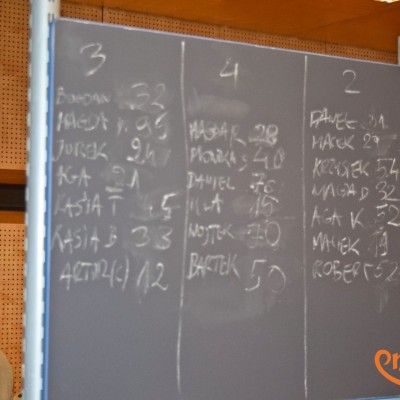 3
BOGDAN 32
MAGDA K 95
JUREK 24
AGA 21
KASIA T 45
KASIA B 33
ARTUR(C) 12
4
MAGDA R 28
MONIKA S 40
DANIEL
15
WOJTEK 70
BARTEK 50
2
PAWEŁ 31
MACIEK 29
KRZYSIEK 54
MAGDA D 32
AGA K 52
MACIEK 19
ROBERT 52